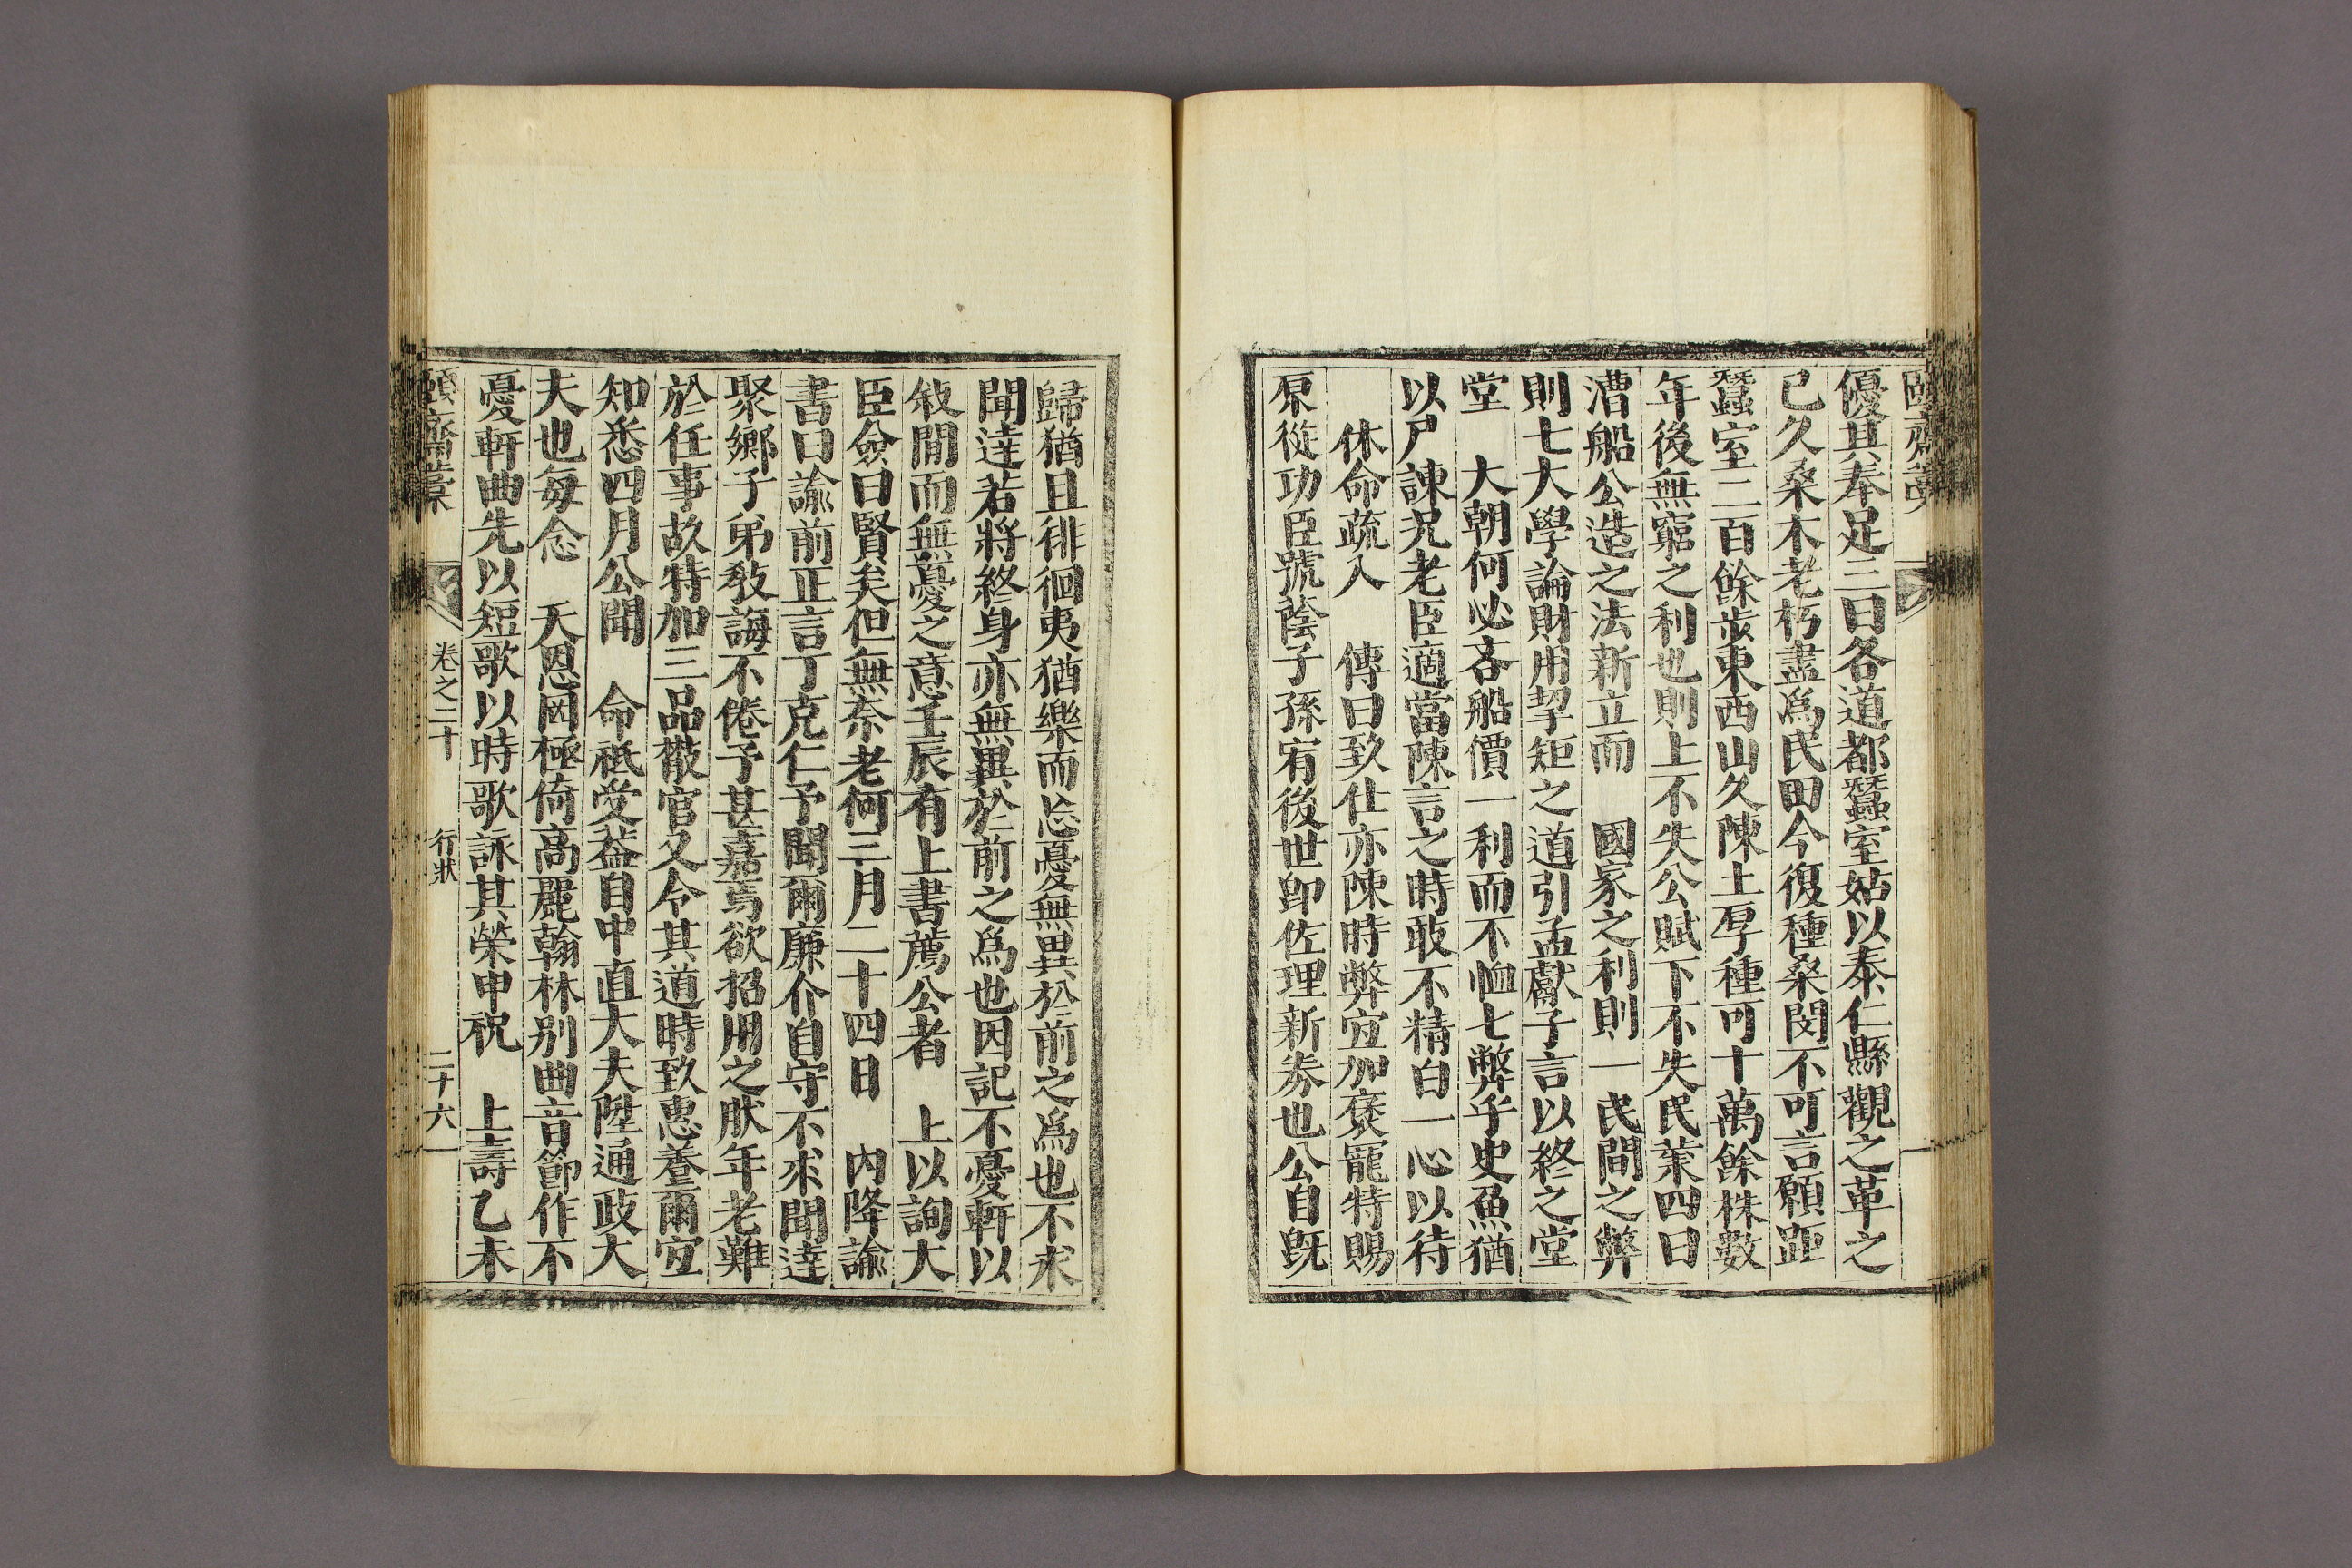 優其奉足三曰各道都蚕室姑以泰仁縣觀之革之
已久桑木老朽盡爲民田今復種桑閔不可言願距
蚕室二百餘步東西山久陳土厚種可十萬餘株數
年後無窮之利也則上不失公賦下不失民業四曰
漕船公造之法新立而 國家之利則一民間之弊
則七大學論財用挈矩之道引孟獻子言以終之堂
堂 大朝何必吝船價一利而不恤七弊乎史魚猶
以尸諫况老臣適當陳言之時敢不精白一心以待
休命疏入 傳曰致仕亦陳時弊宜加褒寵特賜
原從功臣號蔭子孫宥後世卽佐理新券也公自旣
歸猶且徘徊夷猶樂而忘憂無異於前之爲也不求
聞達若將終身亦無異於前之爲也因記不憂軒以
敘閒而無憂之意壬辰有上書薦公者 上以詢大
臣僉曰賢矣但無奈老何三月二十四日 內降諭
書曰諭前正言丁克仁予聞爾廉介自守不求聞達
聚鄉子弟敎誨不倦予甚嘉焉欲招用之肰年老難
於任事故特加三品散官又令其道時致惠養爾宜
知悉四月公聞 命祗受葢自中直大夫陞通政大
夫也每念 天恩罔極倚高麗翰林別曲音節作不
憂軒曲先以短歌以時歌詠其榮申祝 上壽乙未
頤齋藁 卷之二十 行狀 二十六